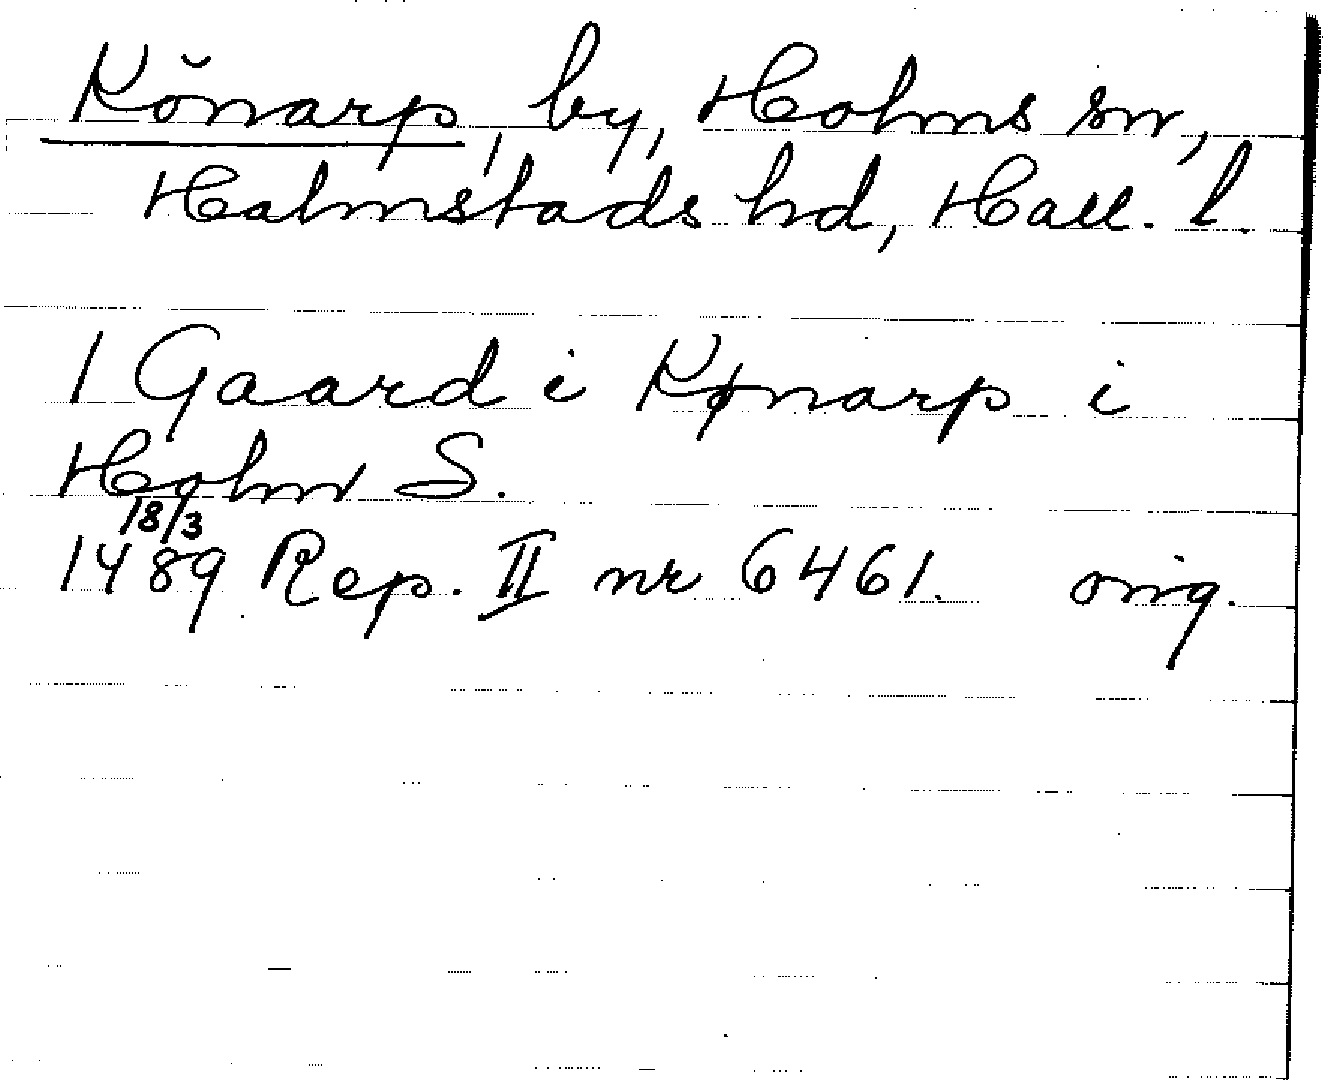 Könarp, by, Holms sn,
Halmstads hd, Hall. l.
1 Gaard i Kønarp i
Holm S.
18/3
1489 Rep. II nr 6461. orig.